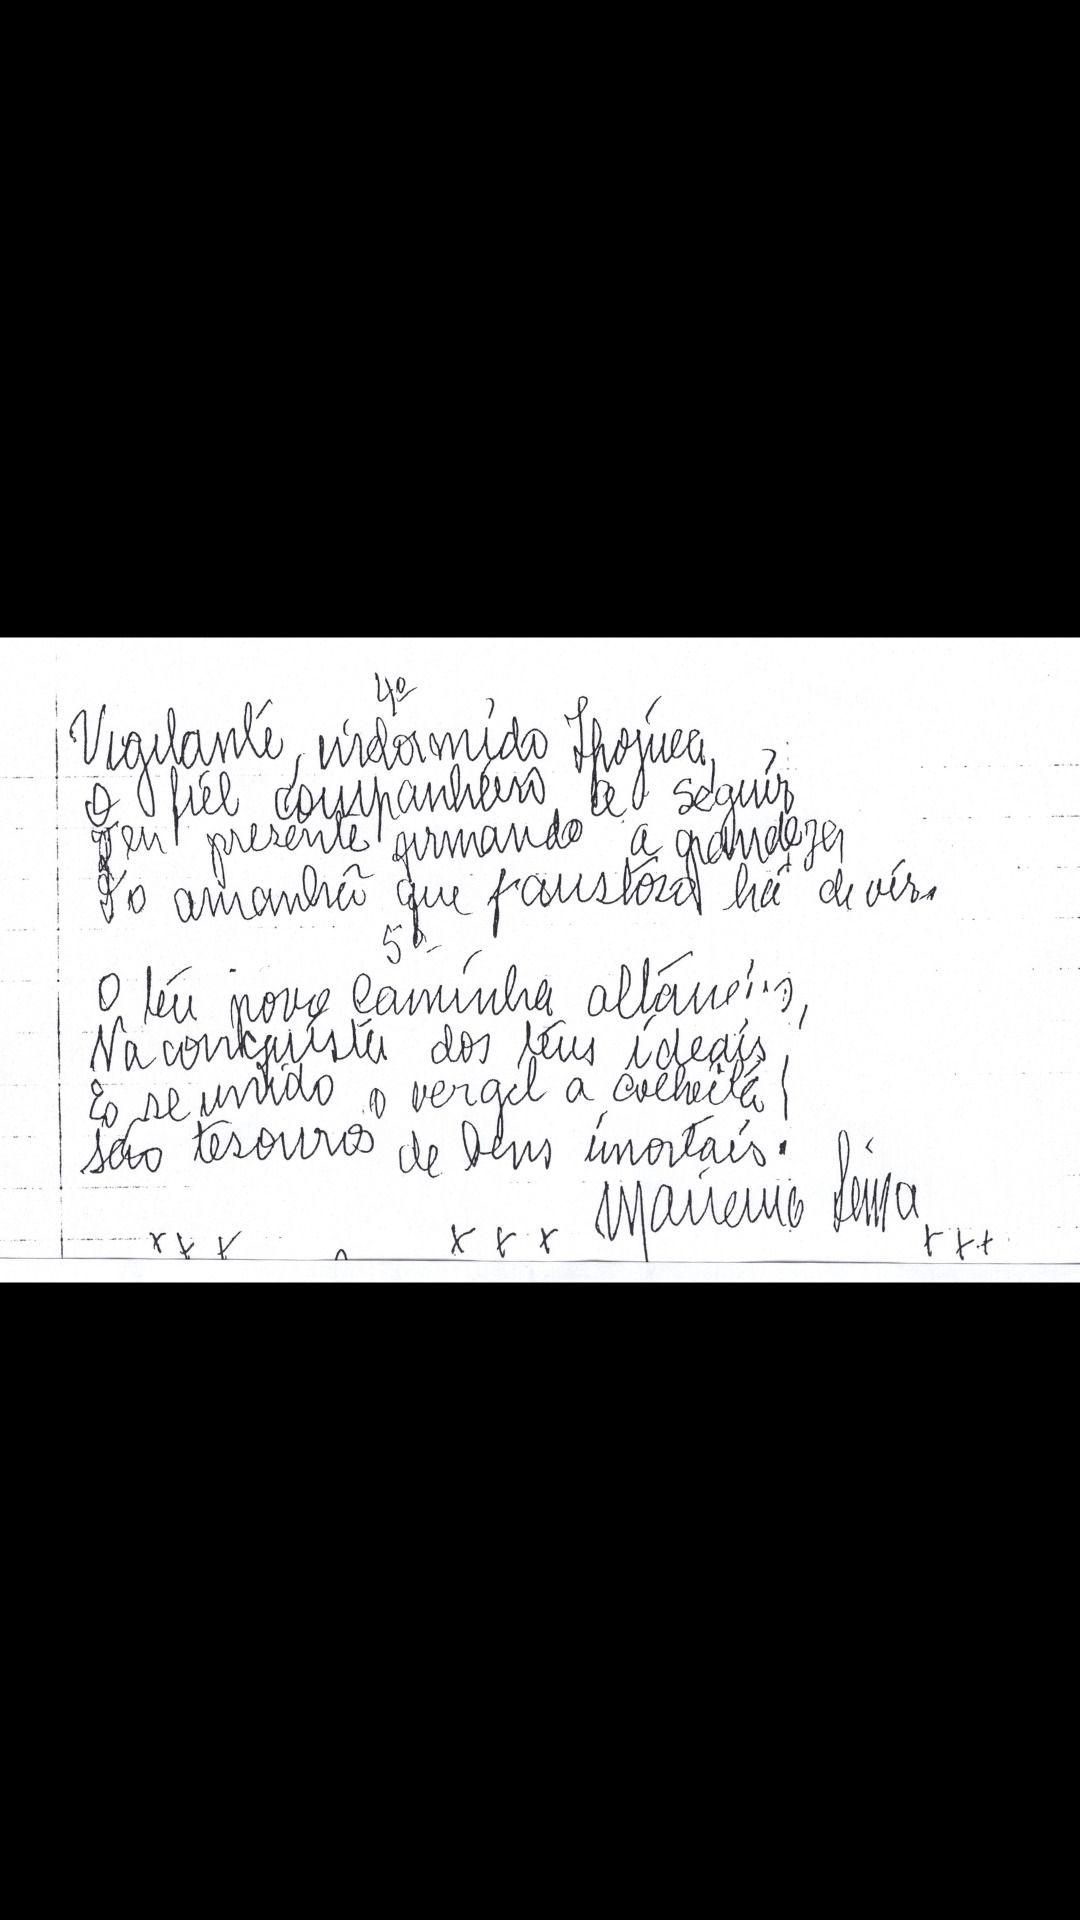 4º
Vigilante, indormido Ipojuca,
O fiel companheiro a seguir
Teu presente firmando a grandeza
Do amanhã que faustoso há de vir.
5º
O teu povo caminha altaneiro,
Na conquista dos teus ideais,
E se unido o vergel a colheita
São tesouros de bens imortais.
Lima
x x x x x x x x x